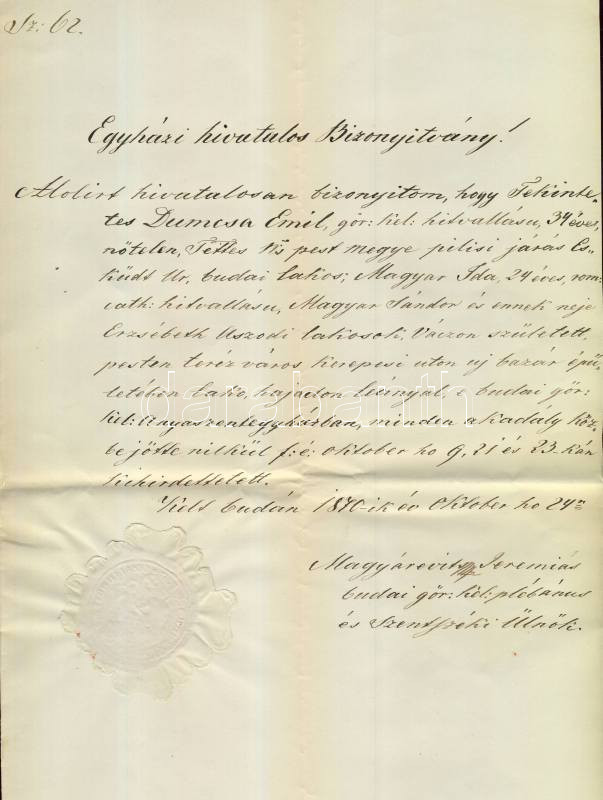 Sz: 62.
Egyházi hivatalos Bizonyitvány!
Alolirt hivatalosan bizonyitom, hogy Tekinte-
tes Dumcsa Emil, gör: kel: hitvallasu, 34 éves,
nőtelen, Ns pest megye pilisi járás Es-
küdt Ur, budai lakos; Magyar Ida, 24 éves, rom:
cath: hitvallásu, Magyar Sándor és ennek neje
Erzsébeth Uszodi lakosok, Váczon született,
pesten teréz város kerepesi uton uj bazár épü-
letében lakó, hajadon leányal, a budai gör:
kel: Anyaszentegyházban, minden akadály köz-
bejötte nélkül f: é: oktober ho 9, 21 és 23. kán
kihirdettetett.
Kelt budán 1870-ik év Oktober ho 24n
Magyárevits Jeremiás
budai gör: kel: plébánus
és Szentszéki Ülnök.
darabanth